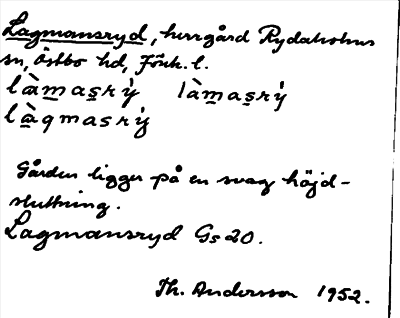 Lagmansryd, herrgård Rydaholms
sn, Östbo hd, Jönk. l.
làmas̲rỳ làm̲as̲rỳ
là̲gmasrỳ
Gården ligger på en svag höjd-
sluttning.
Lagmansryd Gs 20.
Th. Andersson 1952.